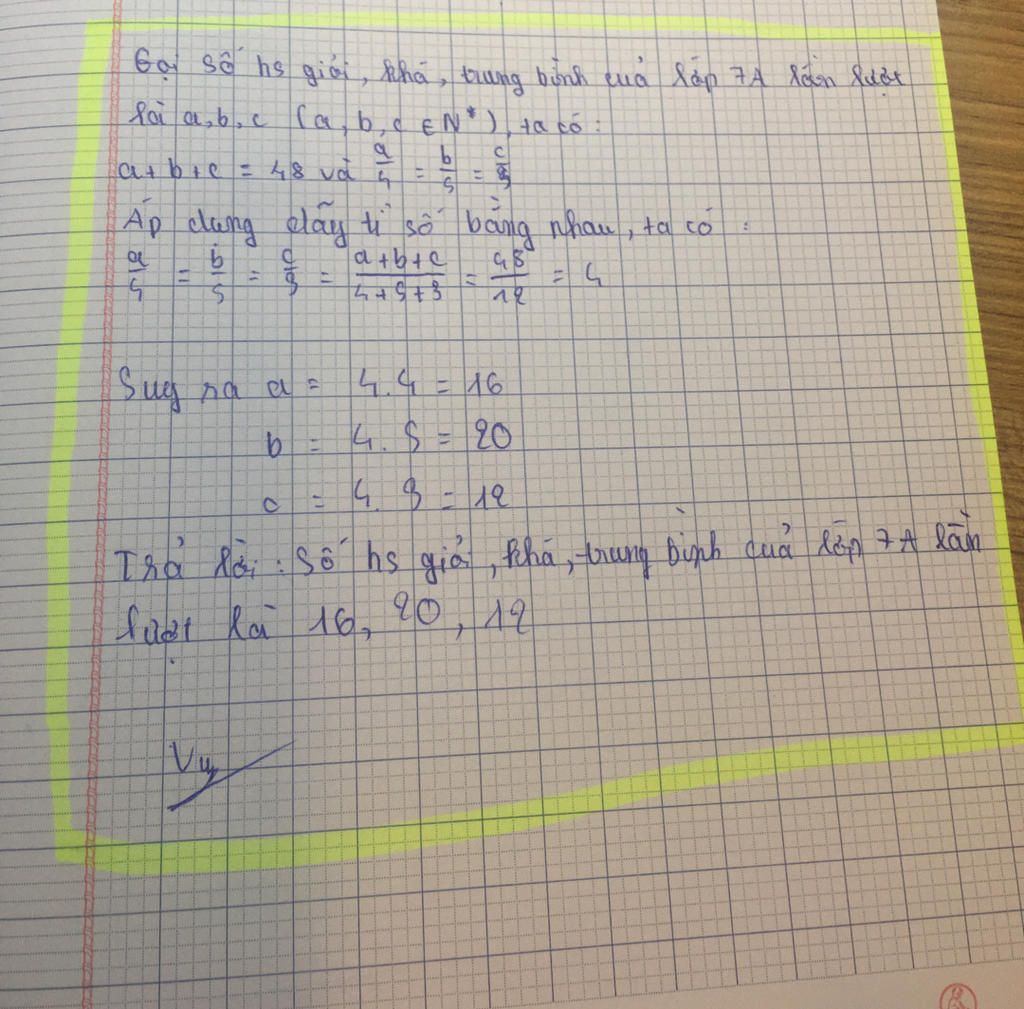 Gọi số hs giỏi, khá, trung bình cuả lớp 7A lần lượt
là a,b,c (a,b,c ∈ N*), ta có:
a+b+c = 48 và a/4 = b/5 = c/3
Áp dụng dãy tỉ số bằng nhau, ta có :
a/4 = b/5 = c/3 = (a+b+c)/(4+5+3) = 48/12 = 4
Suy ra a = 4.4 = 16
b = 4.5 = 20
c = 4.3 = 12
Trả lời: Số hs giỏi, khá, trung bình cuả lớp 7A lần
lượt là 16, 20, 12
Vy